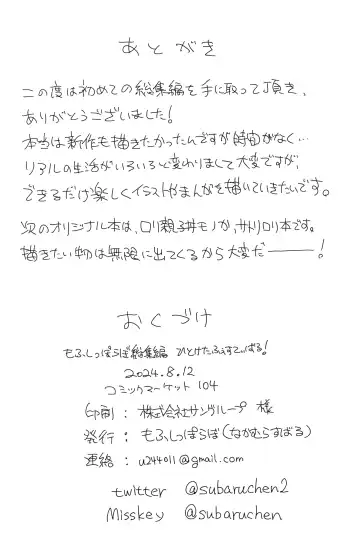 あとがき
この度は初めての総集編を手に取って頂き、
ありがとうございました!
本当は新作も描きたかったんですが時間がなく…
リアルの生活がいろいろと変わりまして大変ですが、
できるだけ楽しくイラストやまんがを描いていきたいです。
次のオリジナル本は、ロリ親子丼モノか、サトリロリ本です。
描きたい物は無限に出てくるから大変だ———!
おくづけ
もふしっぽらぼ総集編 ひとけたふぇすてぃばる!
2024.8.12
コミックマーケット 104
印刷 : 株式会社サングループ 様
発行 : もふしっぽらぼ(なかむらすばる)
連絡 : u244011@gmail.com
twitter @subaruchen2
Misskey @subaruchen